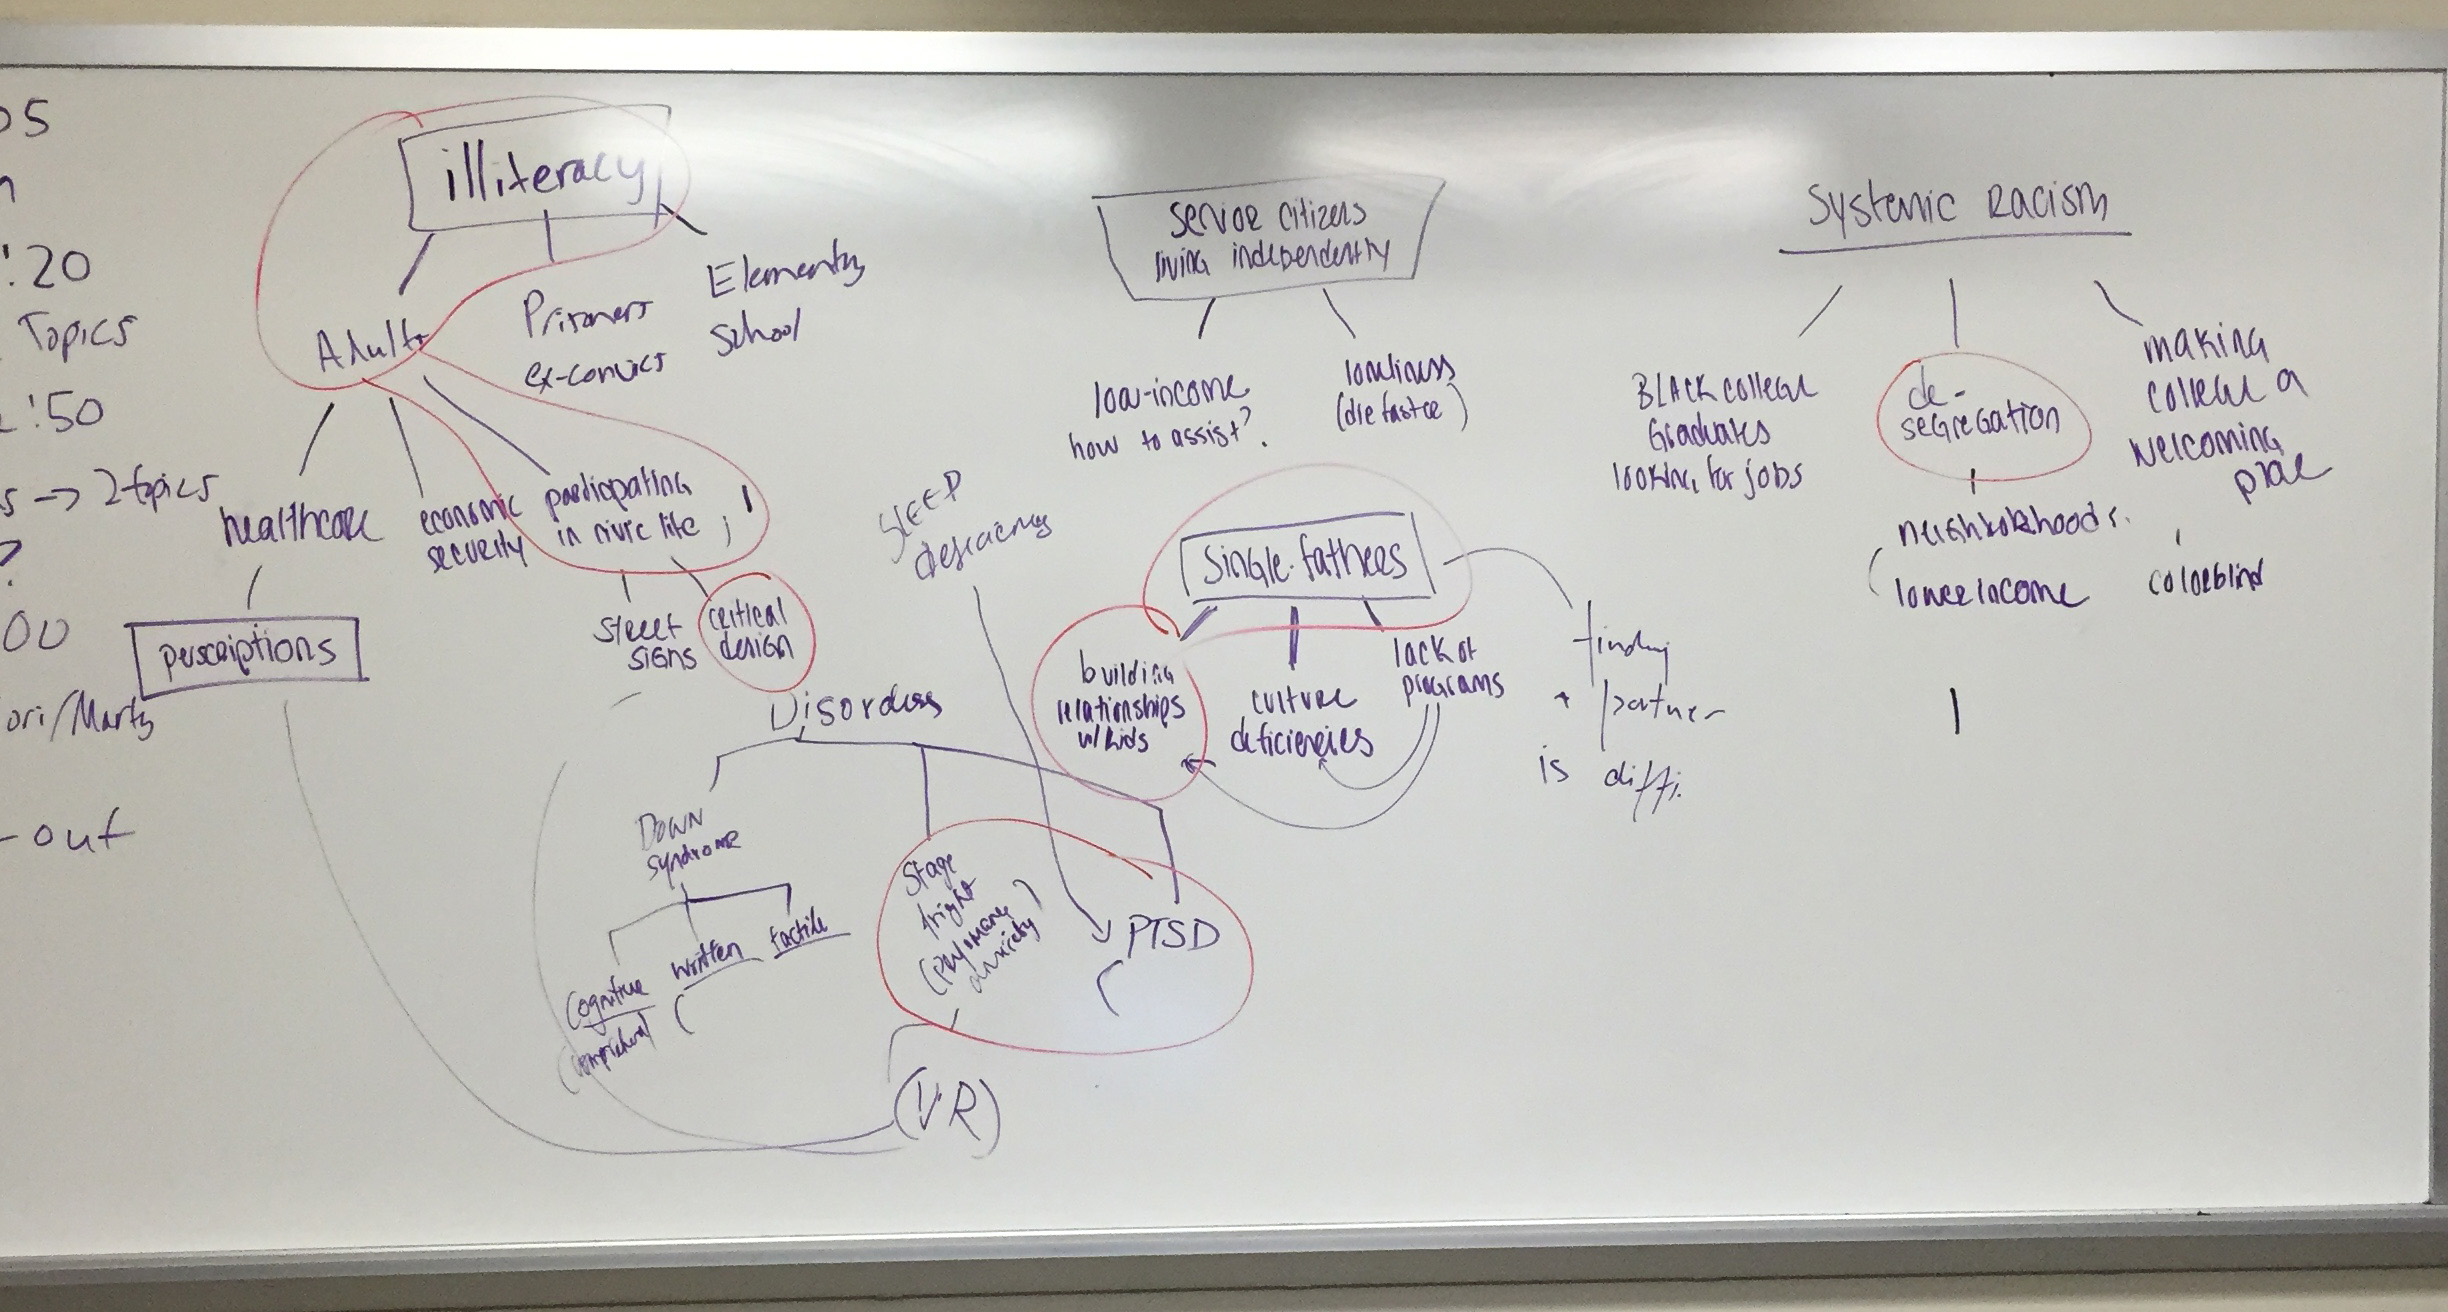 05
:20
Topics
:50
s → 2 topics
?
00
ori/Marty
-out
illiteracy
Adults
Prisoners
ex-convics
Elementry
School
healthcare
economic
security
participating
in civic life
perscriptions
street
signs
critical
design
Disorders
Down
syndrome
Cognitive
written
tactile
Stage
fright
anxiety
PTSD
(VR)
SLEEP
senior citizens
living independently
low-income
how to assist?
loneliness
(die faster)
single-fathers
building
relationships
w/kids
culture
deficiencies
lack of
programs
finding
partner
is diffi.
Systemic Racism
BLACK college
Graduates
looking for jobs
de-
segregation
neighborhoods
lower income
making
college a
welcoming
place
colorblind